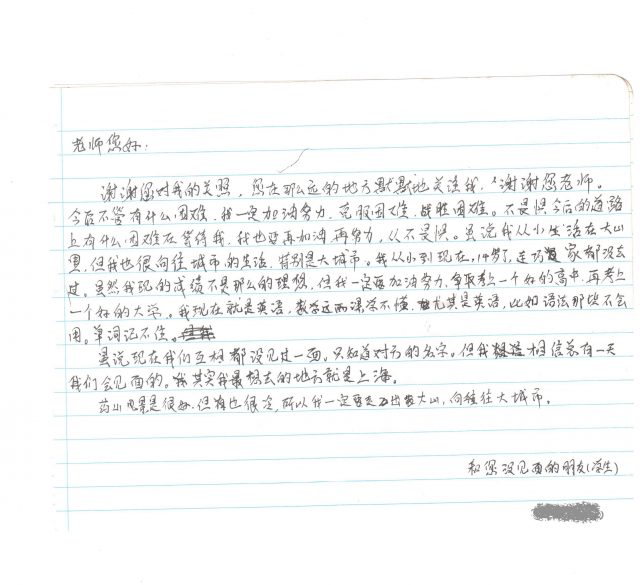 老师您好：
谢谢您对我的关照，您在那么远的地方默默地关注我，谢谢您老师。
今后不管有什么困难，我一定加油努力，克服困难，战胜困难。不畏惧今后的道路
上有什么困难在等待我，我也要再加油再努力，从不畏惧。虽说我从小生活在大山
里，但我也很向往城市的生活，特别是大城市。我从小到现在，14岁了，连巧家都没去
过。虽然我现的成绩不是那么的理想，但我一定要加油努力，争取考上一个好的高中，再考上
一个好的大学。我现在就是英语，数学这两课学不懂，尤其是英语，比如语法那些不会
用。单词记不住。
虽说现在我们互相都没见过一面，只知道对方的名字。但我相信总有一天
我们会见面的。我其实我最想去的地方就是上海。
药山风景是很好，但有也很冷，所以我一定要走出大山，向往大城市。
和您没见面的朋友(学生)